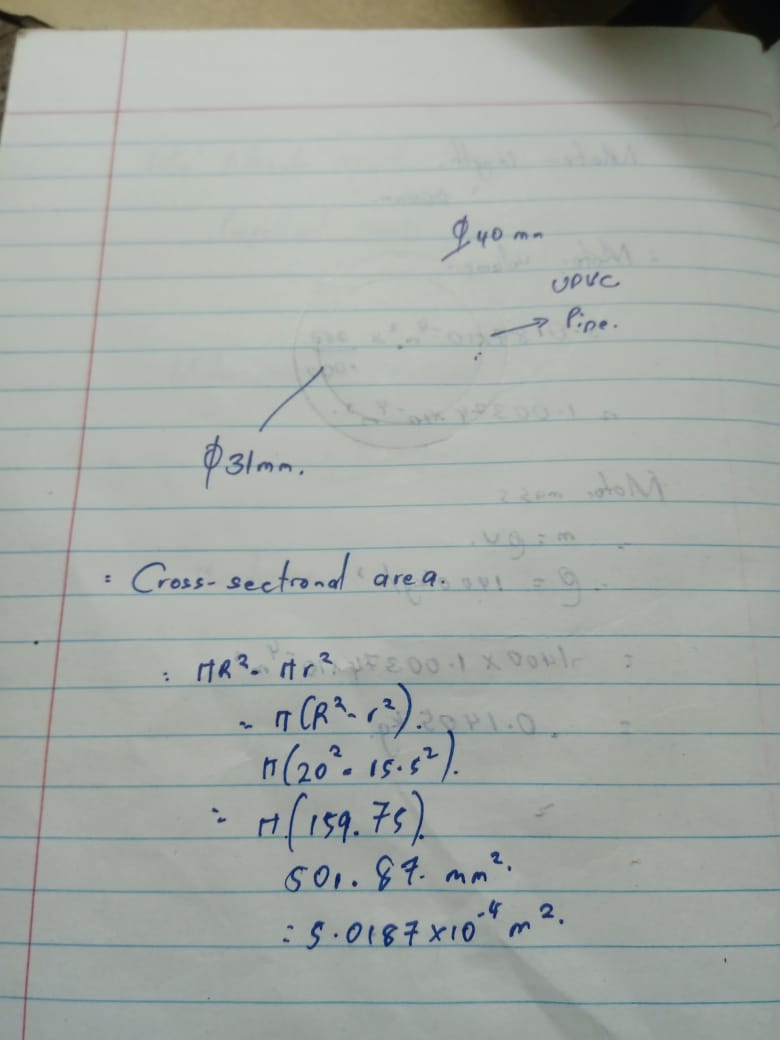 ϕ40 mm
UPVC
Pipe.
ϕ31mm.
: Cross-sectional area.
: πR² - πr²
= π(R² - r²).
π(20² - 15.5²).
= π(159.75).
501.87 mm².
= 5.0187 × 10⁻⁴ m².